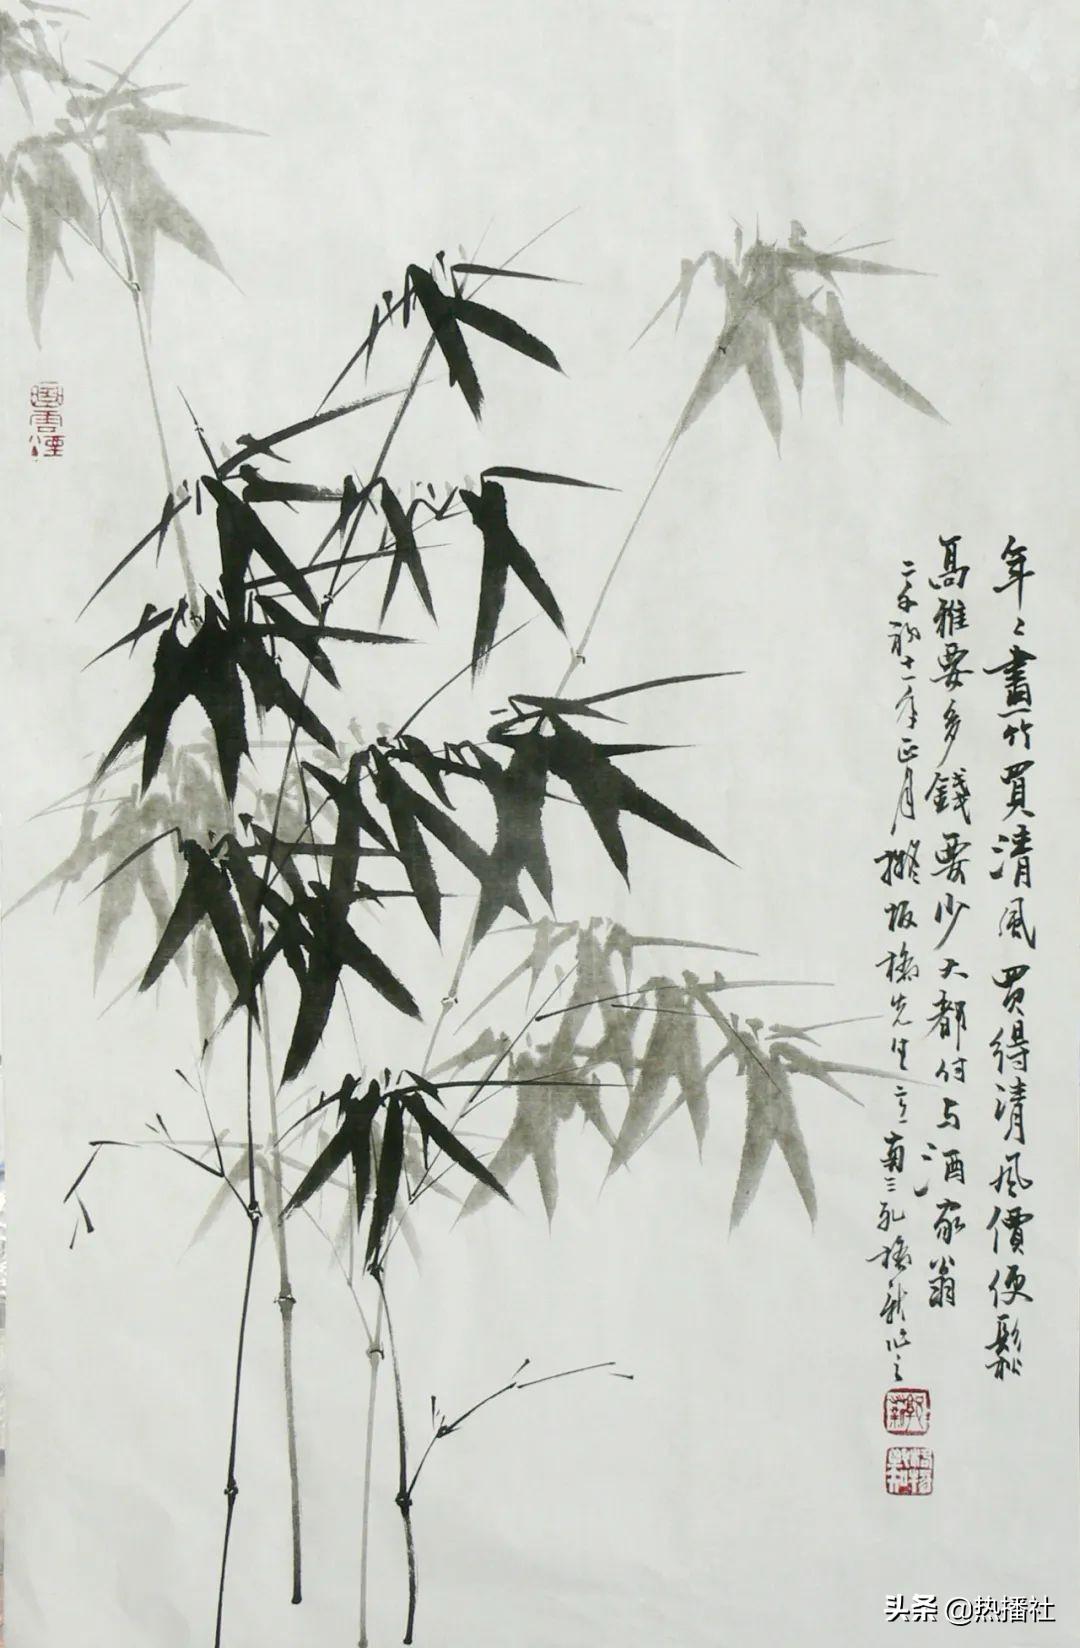 年〻畫竹買清風買得清風價便鬆
高雅要多錢要少大都付与酒家翁
十一年正月擬板橋先生 南三孔橋
头条 @热播社